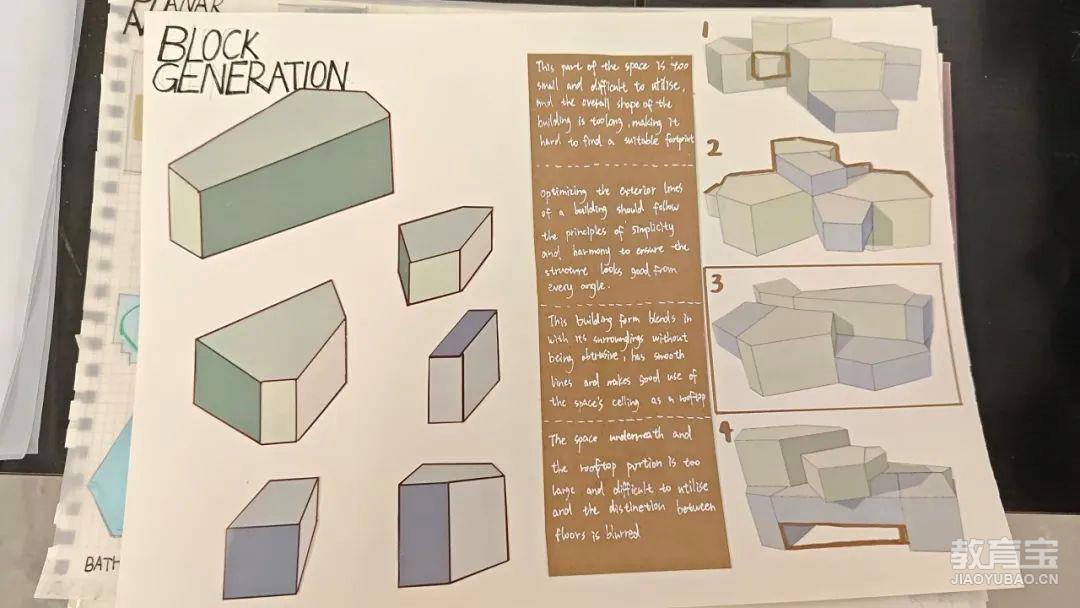 PLANAR
A
BLOCK
GENERATION
This part of the space is too
small and difficult to utilise,
and the overall shape of the
building is too long, making it
hard to find a suitable footprint
Optimizing the exterior lines
of a building should follow
the principles of simplicity
and harmony to ensure the
structure looks good from
every angle.
This building form blends in
with its surroundings without
being obtrusive, has smooth
lines and makes good use of
the space's celling as a rooftop
The space underneath and
the rooftop portion is too
large and difficult to utilise
and the distinction between
floors is blurred
1
2
3
4
BATH
教育宝
JIAOYUBAO.CN